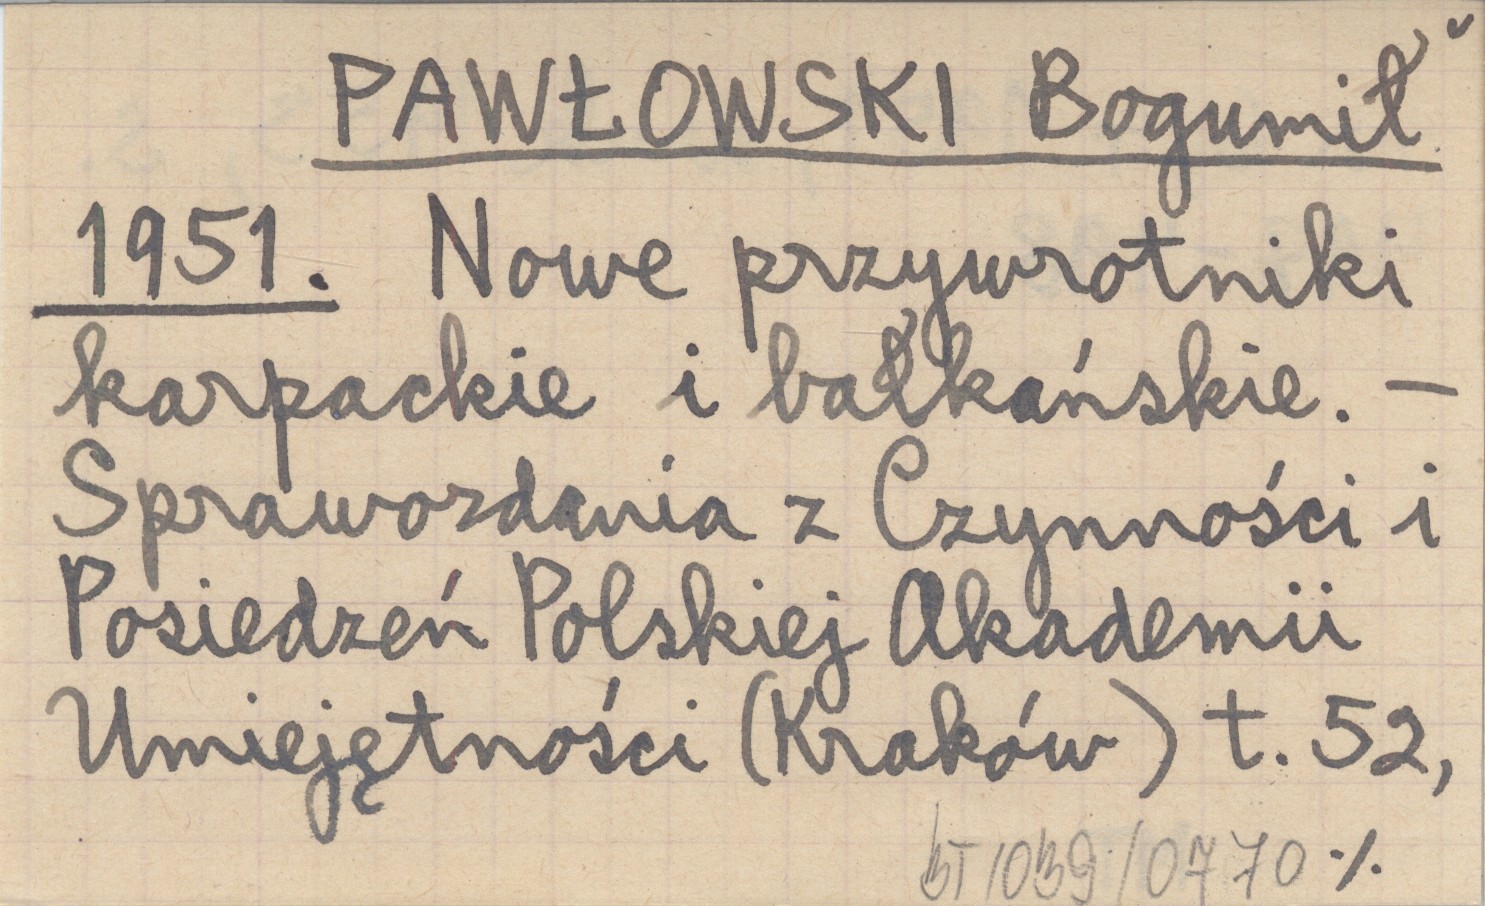 PAWŁOWSKI Bogumił
1951. Nowe przywrotniki
karpackie i bałkańskie. —
Sprawozdania z Czynności i
Posiedzeń Polskiej Akademii
Umiejętności (Kraków) t. 52,
BT/039/0770 ·/.